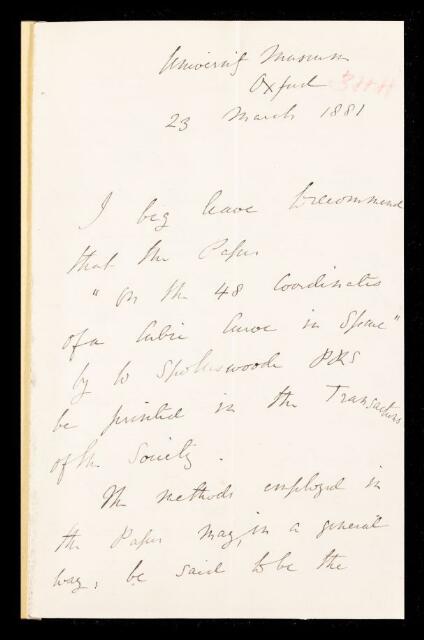 University Museum
Oxford
23 March 1881
I beg leave to recommend
that the Paper
"On the 48 Coordinates
of a Cubic Curve in Space"
by W Spottiswoode PRS
be printed in the Transactions
of the Society.
The methods employed in
the Paper may, in a general
way, be said to be the